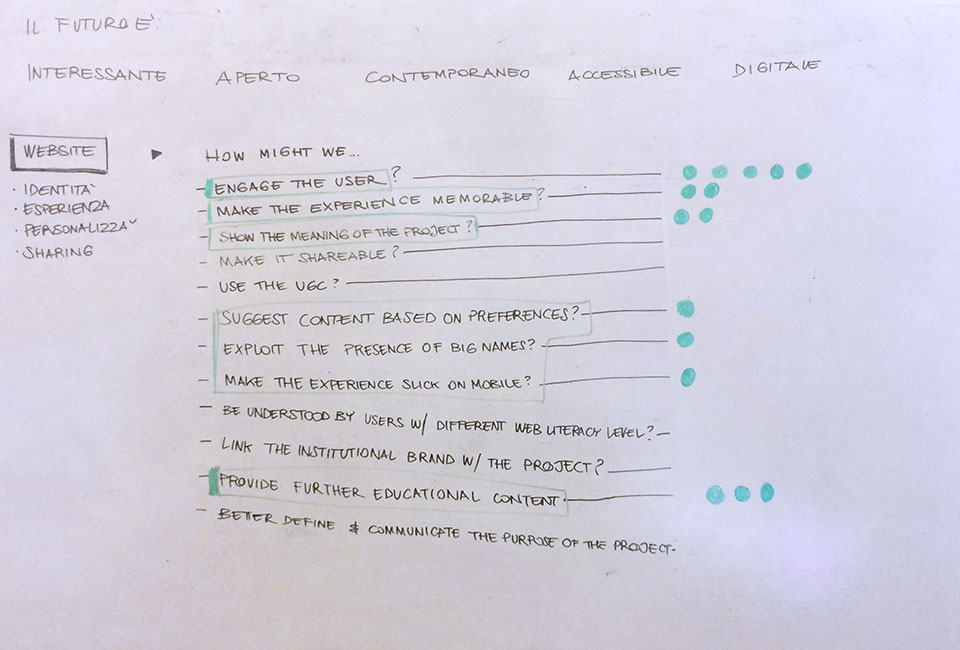 IL FUTURO E'
INTERESSANTE APERTO CONTEMPORANEO ACCESSIBILE DIGITALE
WEBSITE
· IDENTITA'
· ESPERIENZA
· PERSONALIZZA
· SHARING
HOW MIGHT WE...
– ENGAGE THE USER?
– MAKE THE EXPERIENCE MEMORABLE?
– SHOW THE MEANING OF THE PROJECT?
– MAKE IT SHAREABLE?
– USE THE UGC?
– SUGGEST CONTENT BASED ON PREFERENCES?
– EXPLOIT THE PRESENCE OF BIG NAMES?
– MAKE THE EXPERIENCE SLICK ON MOBILE?
– BE UNDERSTOOD BY USERS W/ DIFFERENT WEB LITERACY LEVEL?
– LINK THE INSTITUTIONAL BRAND W/ THE PROJECT?
– PROVIDE FURTHER EDUCATIONAL CONTENT.
– BETTER DEFINE & COMMUNICATE THE PURPOSE OF THE PROJECT.